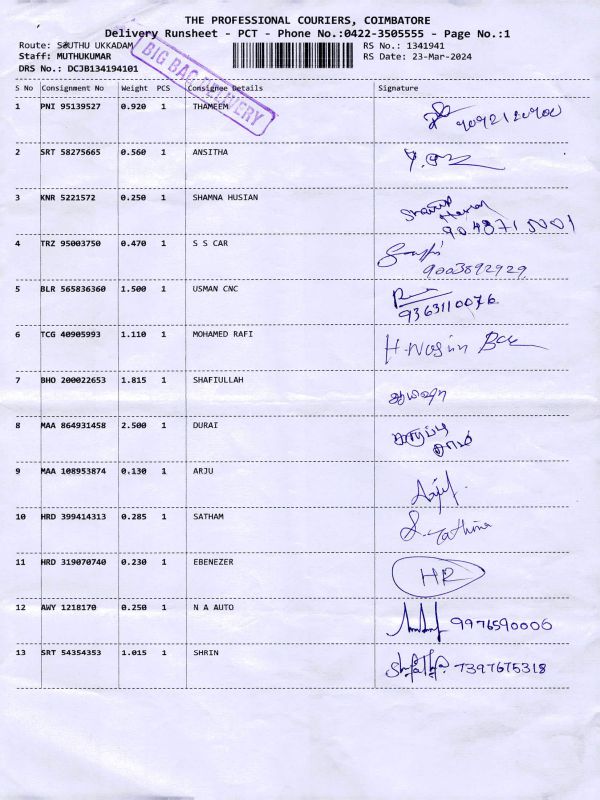 THE PROFESSIONAL COURIERS, COIMBATORE
Delivery Runsheet - PCT - Phone No.:0422-3505555 - Page No.:1
Route: SOUTHU UKKADAM
RS No.: 1341941
Staff: MUTHUKUMAR
RS Date: 23-Mar-2024
DRS No.: DCJB134194101
BIG BAG DELIVERY
S No Consignment No Weight PCS Consignee Details Signature
1 PNI 95139527 0.920 1 THAMEEM
2 SRT 58275665 0.560 1 ANSITHA
3 KNR 5221572 0.250 1 SHAMNA HUSIAN
9048715001
4 TRZ 95003750 0.470 1 S S CAR
9003892929
5 BLR 565836360 1.500 1 USMAN CNC
9363110076
6 TCG 40905993 1.110 1 MOHAMED RAFI
7 BHO 200022653 1.815 1 SHAFIULLAH
8 MAA 864931458 2.500 1 DURAI
9 MAA 108953874 0.130 1 ARJU
10 HRD 399414313 0.285 1 SATHAM
11 HRD 319070740 0.230 1 EBENEZER HR
12 AWY 1218170 0.250 1 N A AUTO 9976590006
13 SRT 54354353 1.015 1 SHRIN 7397675318